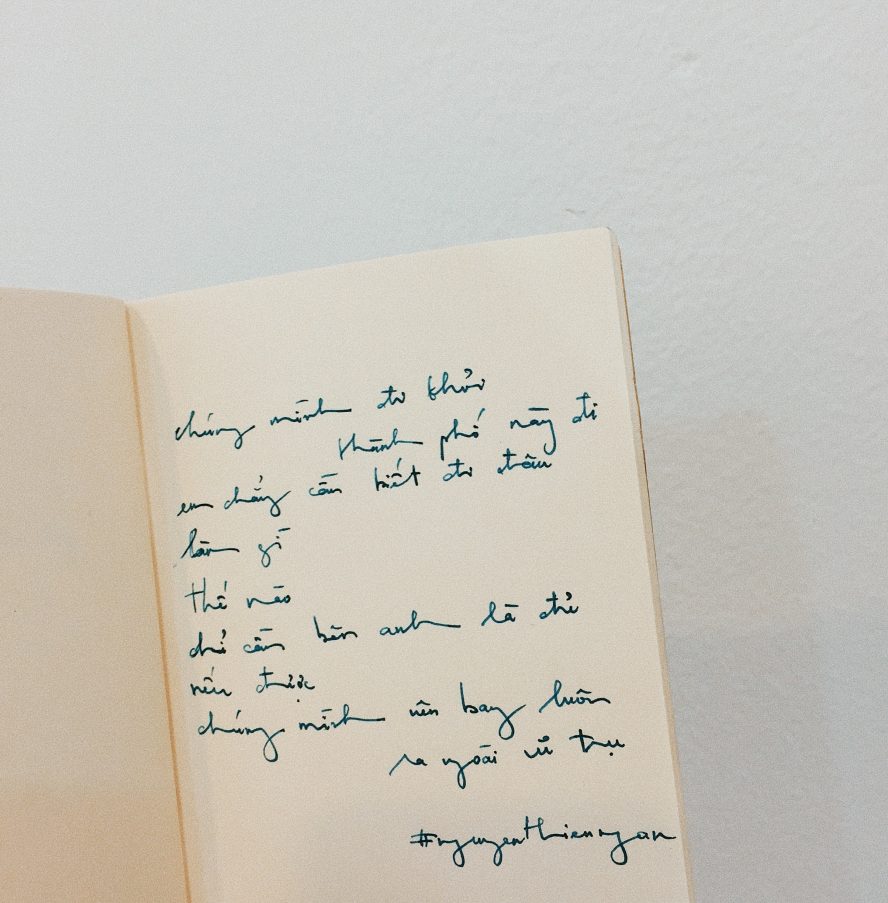 chúng mình đi khỏi
thành phố này đi
em chẳng cần biết đi đâu
làm gì
thế nào
chỉ cần bên anh là đủ
nếu được
chúng mình nên bay luôn
ra ngoài vũ trụ
#nguyenthienngan